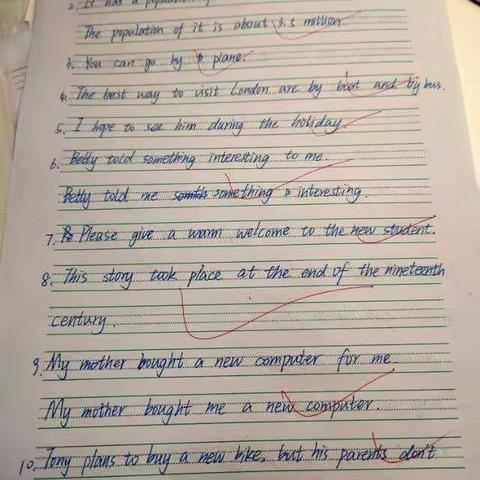 2. It has a population
The population of it is about 3.5 million
3. You can go by plane.
4. The best way to visit London are by boat and by bus.
5. I hope to see him during the holiday.
6. Betty told something interesting to me.
Betty told me something interesting.
7. Please give a warm welcome to the new student.
8. This story took place at the end of the nineteenth
century.
9. My mother bought a new computer for me.
My mother bought me a new computer.
10. Tony plans to buy a new bike, but his parents don't